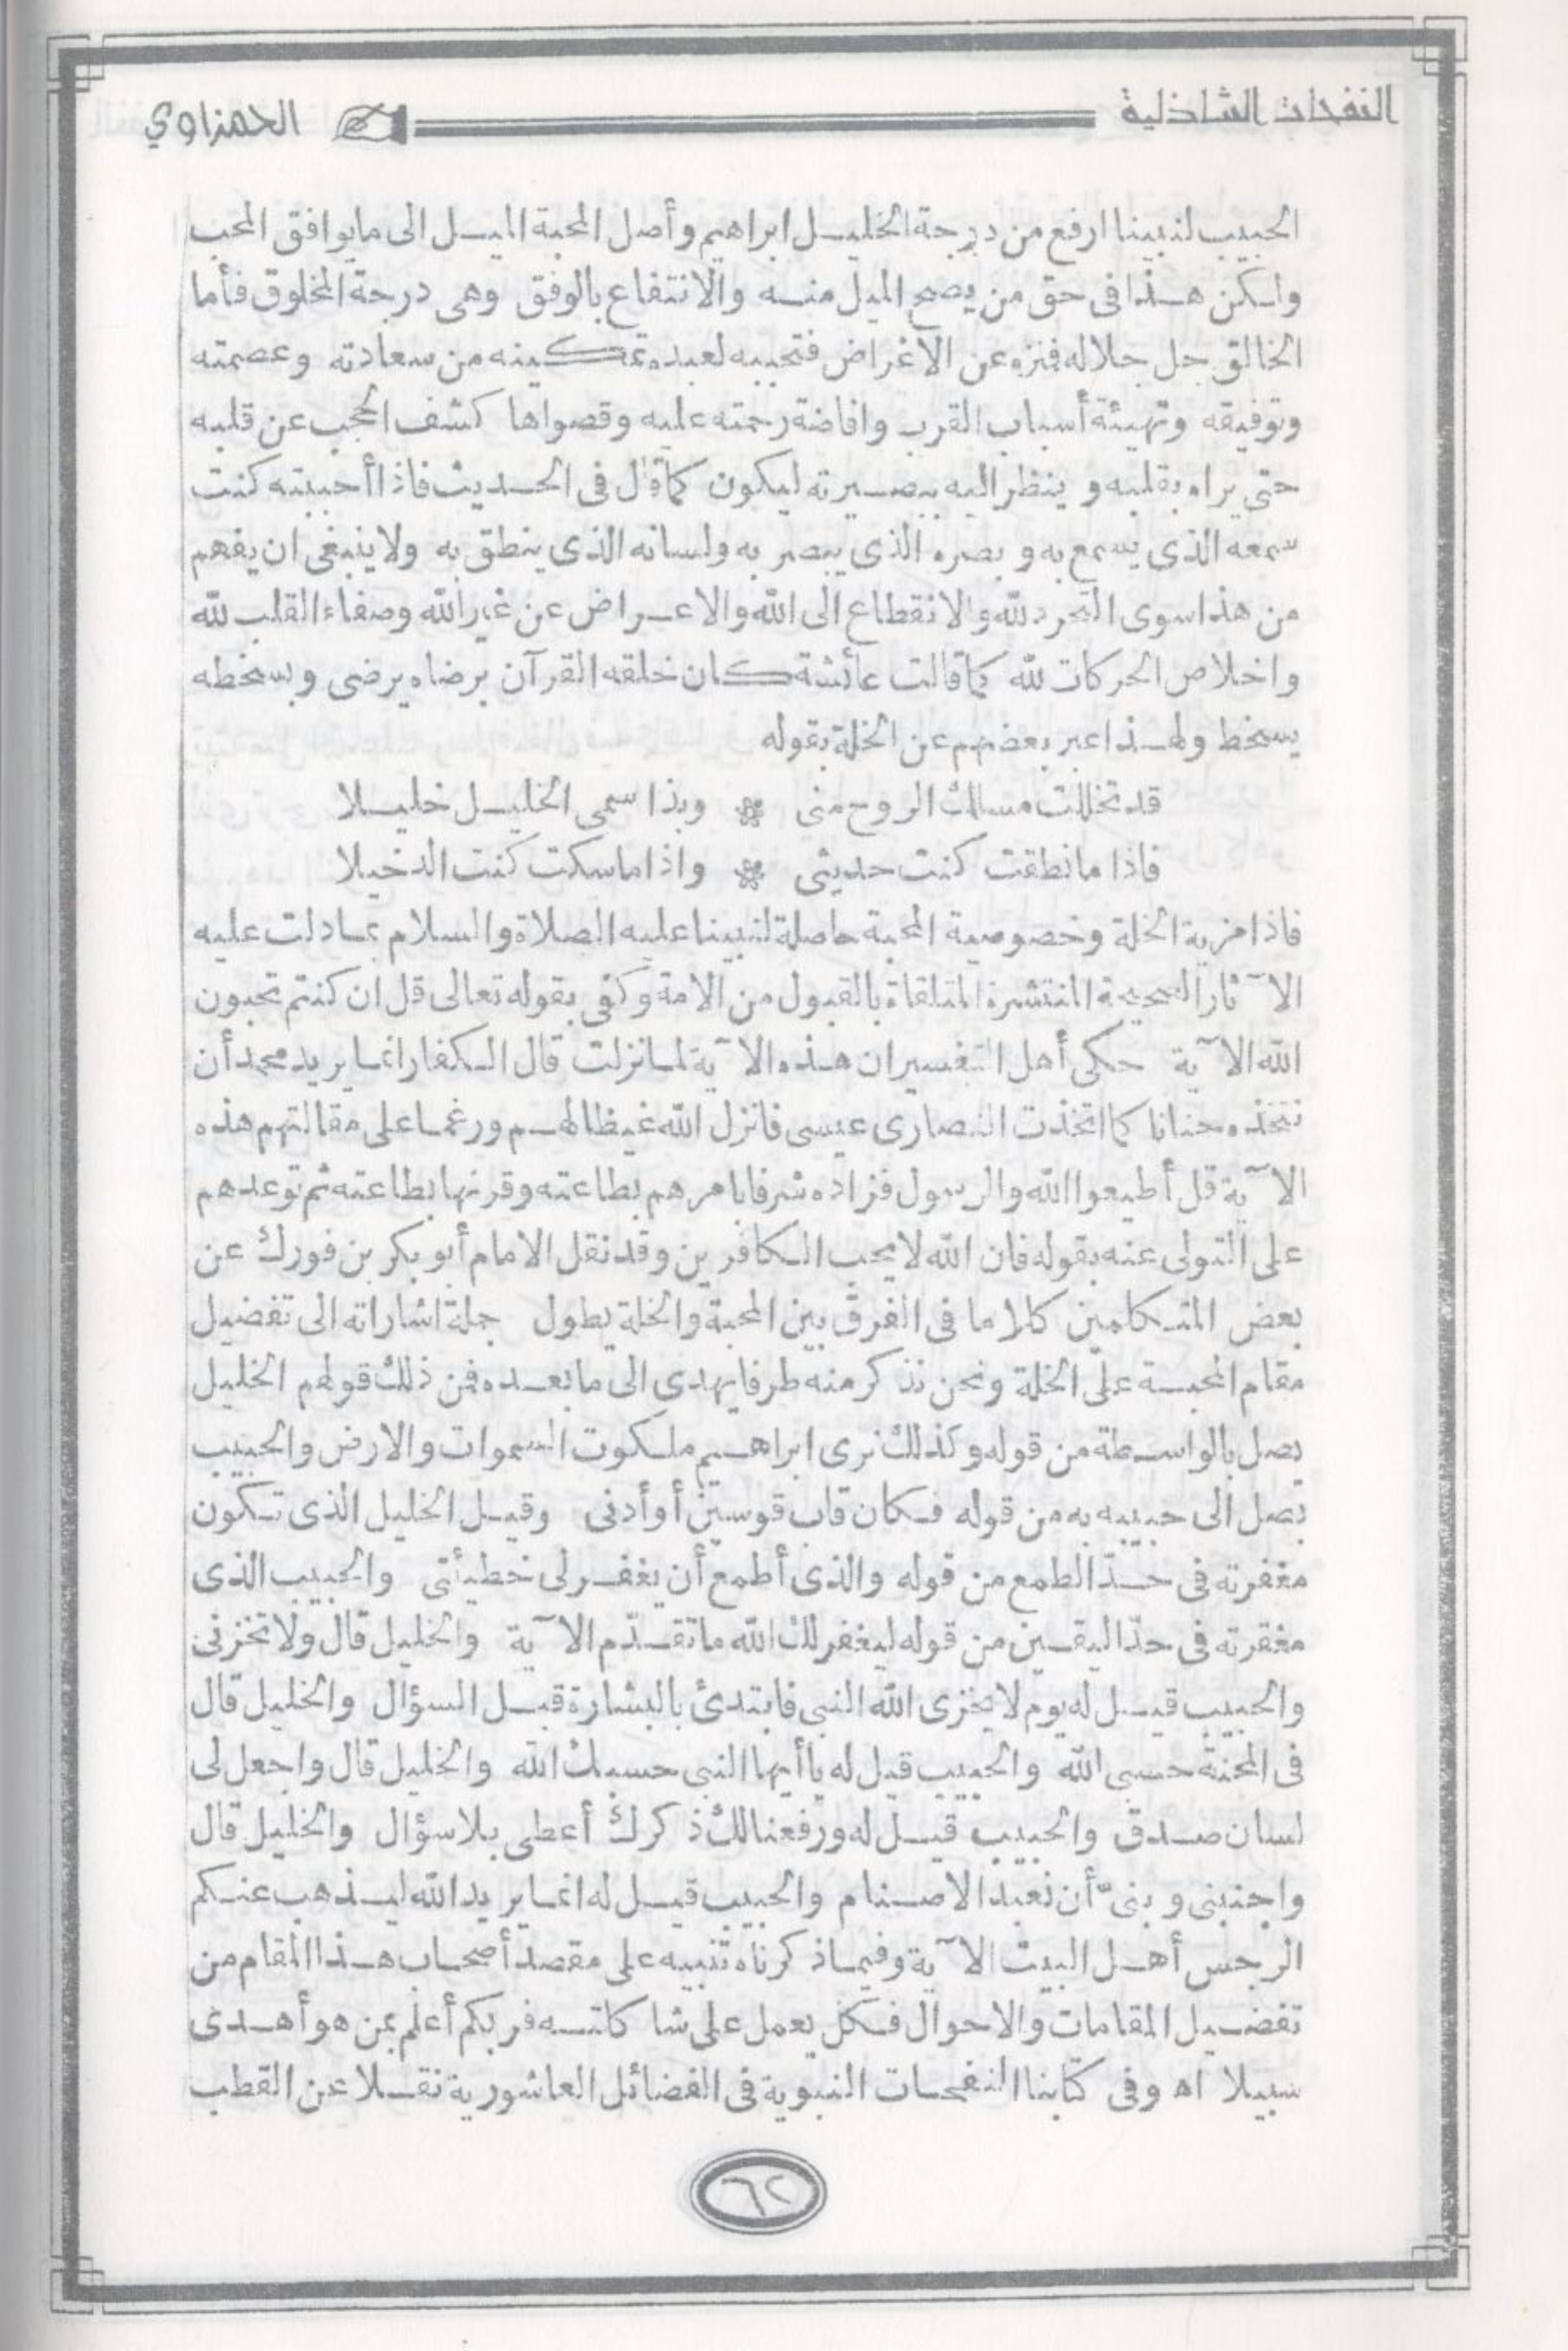 النفحات الشاذلية
الحمزاوي
الحبيب لنبينا ارفع من درجة الخليل ابراهيم وأصل المحبة الميل الى مايوافق المحب
ولكن هذا فى حق من يصح الميل منه والانتفاع بالوفق وهى درجة المخلوق فأما
الخالق جل جلاله فمنزه عن الاغراض فتحبيبه لعبده تمكينه من سعادته وعصمته
وتوفيقه وتهيئة أسباب القرب وافاضة رحمته عليه وقصواها كشف الحجب عن قلبه
حتى يراه بقلبه و ينظر اليه ببصيرته ليكون كما قال فى الحديث فاذا أحببته كنت
سمعه الذى يسمع به و بصره الذى يبصر به ولسانه الذى ينطق به ولا ينبغى ان يفهم
من هذا سوى التجرد لله والانقطاع الى الله والاعراض عن غير الله وصفاء القلب لله
واخلاص الحركات لله كما قالت عائشة كان خلقه القرآن برضاه يرضى وبسخطه
يسخط ولهذا عبر بعضهم عن الخلة بقوله
قد تخللت مسلك الروح منى * وبذا سمى الخليل خليلا
فاذا ما نطقت كنت حديثى * واذا ما سكت كنت الدخيلا
فاذا مزية الخلة وخصوصية المحبة حاصلة لنبينا عليه الصلاة والسلام بما دلت عليه
الآثار الصحيحة المنتشرة المتلقاة بالقبول من الامة وكفى بقوله تعالى قل ان كنتم تحبون
الله الآية حكى أهل التفسير ان هذه الآية لما نزلت قال الكفار انما يريد محمد أن
نتخذه حنانا كما اتخذت النصارى عيسى فانزل الله غيظا لهم ورغما على مقالتهم هذه
الآية قل أطيعوا الله والرسول فزاده شرفا بامرهم بطاعته وقرنها بطاعته ثم توعدهم
على التولى عنه بقوله فان الله لا يحب الكافرين وقد نقل الامام أبو بكر بن فورك عن
بعض المتكلمين كلاما فى الفرق بين المحبة والخلة يطول جملة اشاراته الى تفضيل
مقام المحبة على الخلة ونحن نذكر منه طرفا يهدى الى ما بعده فمن ذلك قولهم الخليل
يصل بالواسطة من قوله وكذلك نرى ابراهيم ملكوت السموات والارض والحبيب
يصل الى حبيبه به من قوله فكان قاب قوسين أو أدنى وقيل الخليل الذى تكون
مغفرته فى حدّ الطمع من قوله والذى أطمع أن يغفر لى خطيئتى والحبيب الذى
مغفرته فى حدّ اليقين من قوله ليغفر لك الله ما تقدّم الآية والخليل قال ولا تخزنى
والحبيب قيل له يوم لا يخزى الله النبى فابتدئ بالبشارة قبل السؤال والخليل قال
فى المحنة حسبى الله والحبيب قيل له يا أيها النبى حسبك الله والخليل قال واجعل لى
لسان صدق والحبيب قيل له ورفعنا لك ذكرك أعطى بلا سؤال والخليل قال
واجنبنى و بنىّ أن نعبد الاصنام والحبيب قيل له انما يريد الله ليذهب عنكم
الرجس أهل البيت الآية وفيما ذكرناه تنبيه على مقصد أصحاب هذا المقام من
تفضيل المقامات والاحوال فكل يعمل على شاكلته فربكم أعلم بمن هو أهدى
سبيلا اه وفى كتابنا النفحات النبوية فى الفضائل العاشورية نقلا عن القطب
٦٢